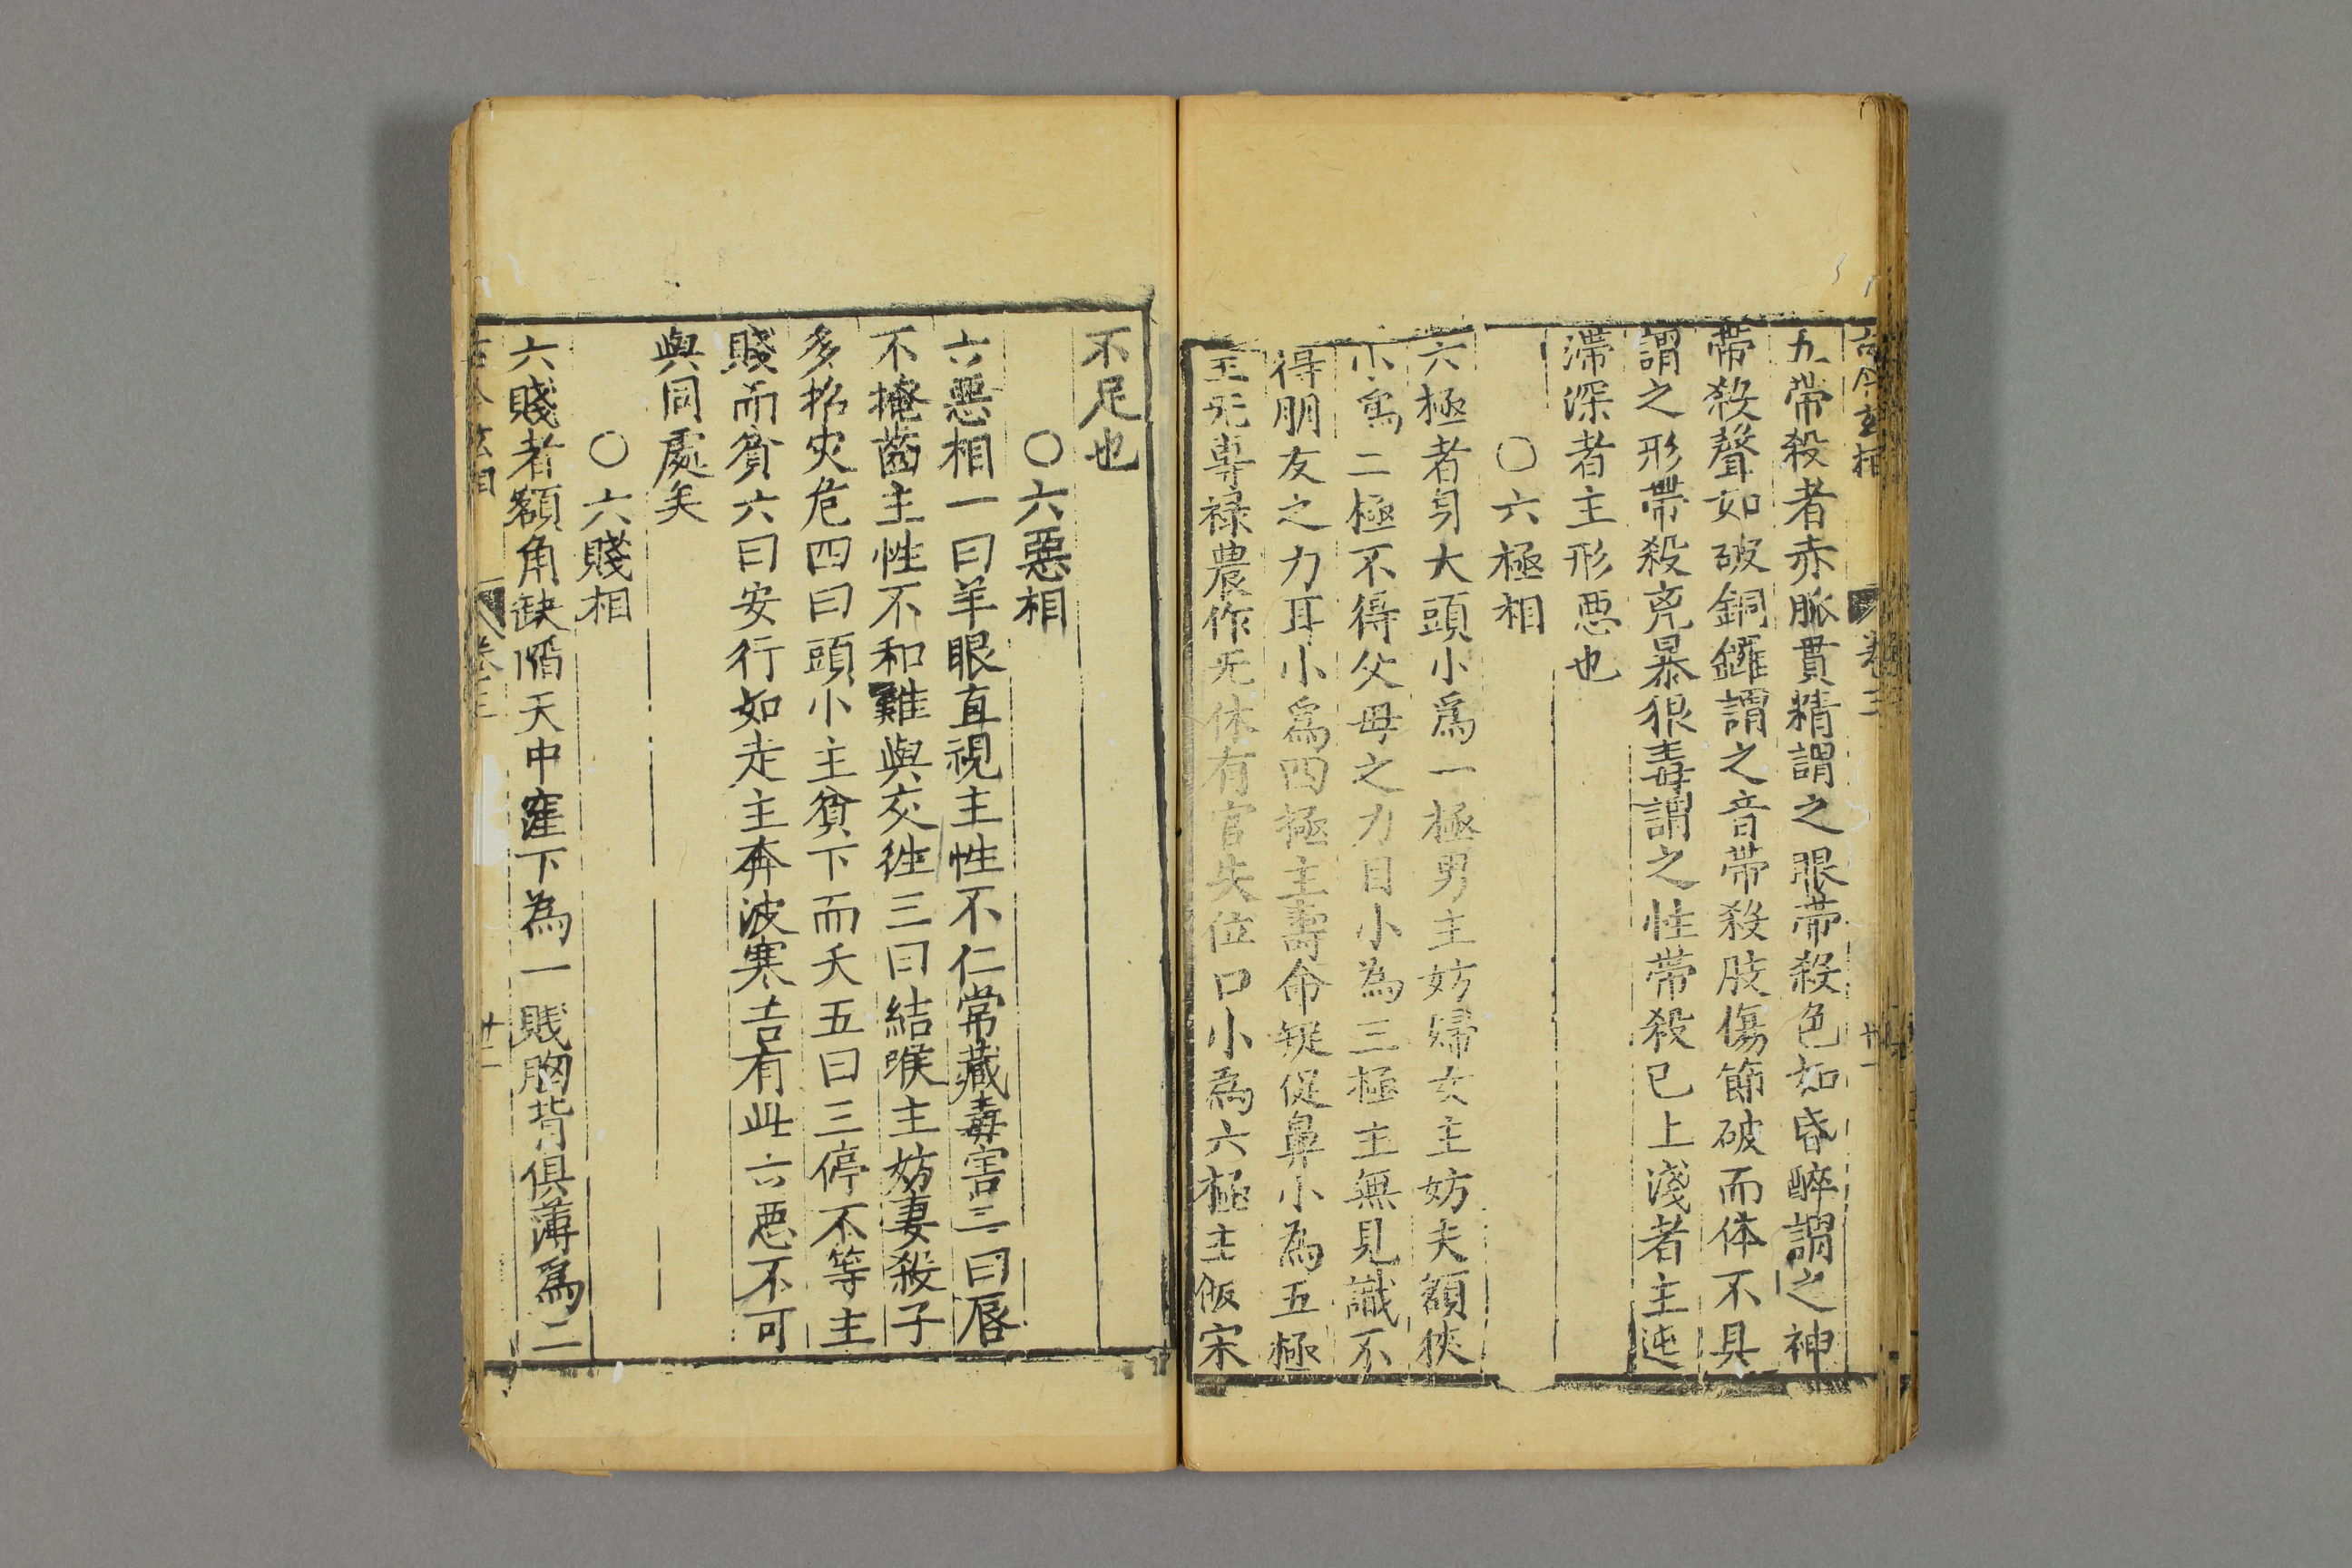 古今玄相 卷三 廿一
五帶殺者赤脈貫精謂之眼帶殺色如昏醉謂之神
帶殺聲如破銅鑼謂之音帶殺肢傷節破而体不具
謂之形帶殺兇暴狠毒謂之性帶殺已上淺者主迍
滯深者主形惡也
○六極相
六極者身大頭小爲一極男主妨婦女主妨夫額狹
小爲二極不得父母之力目小為三極主無見識不
得朋友之力耳小爲四極主壽命短促鼻小為五極
主旡專祿農作旡休有官失位口小為六極主飯宋
不足也
○六惡相
六惡相一曰羊眼直視主性不仁常藏毒害二曰唇
不掩齒主性不和難與交徃三曰結喉主妨妻殺子
多招灾危四曰頭小主貧下而夭五曰三停不等主
賤而貧六曰安行如走主奔波寒吉有此六惡不可
與同處矣
○六賤相
六賤者額角缺陷天中窪下為一賤胸背俱薄爲二
古今玄相 卷三 廿二